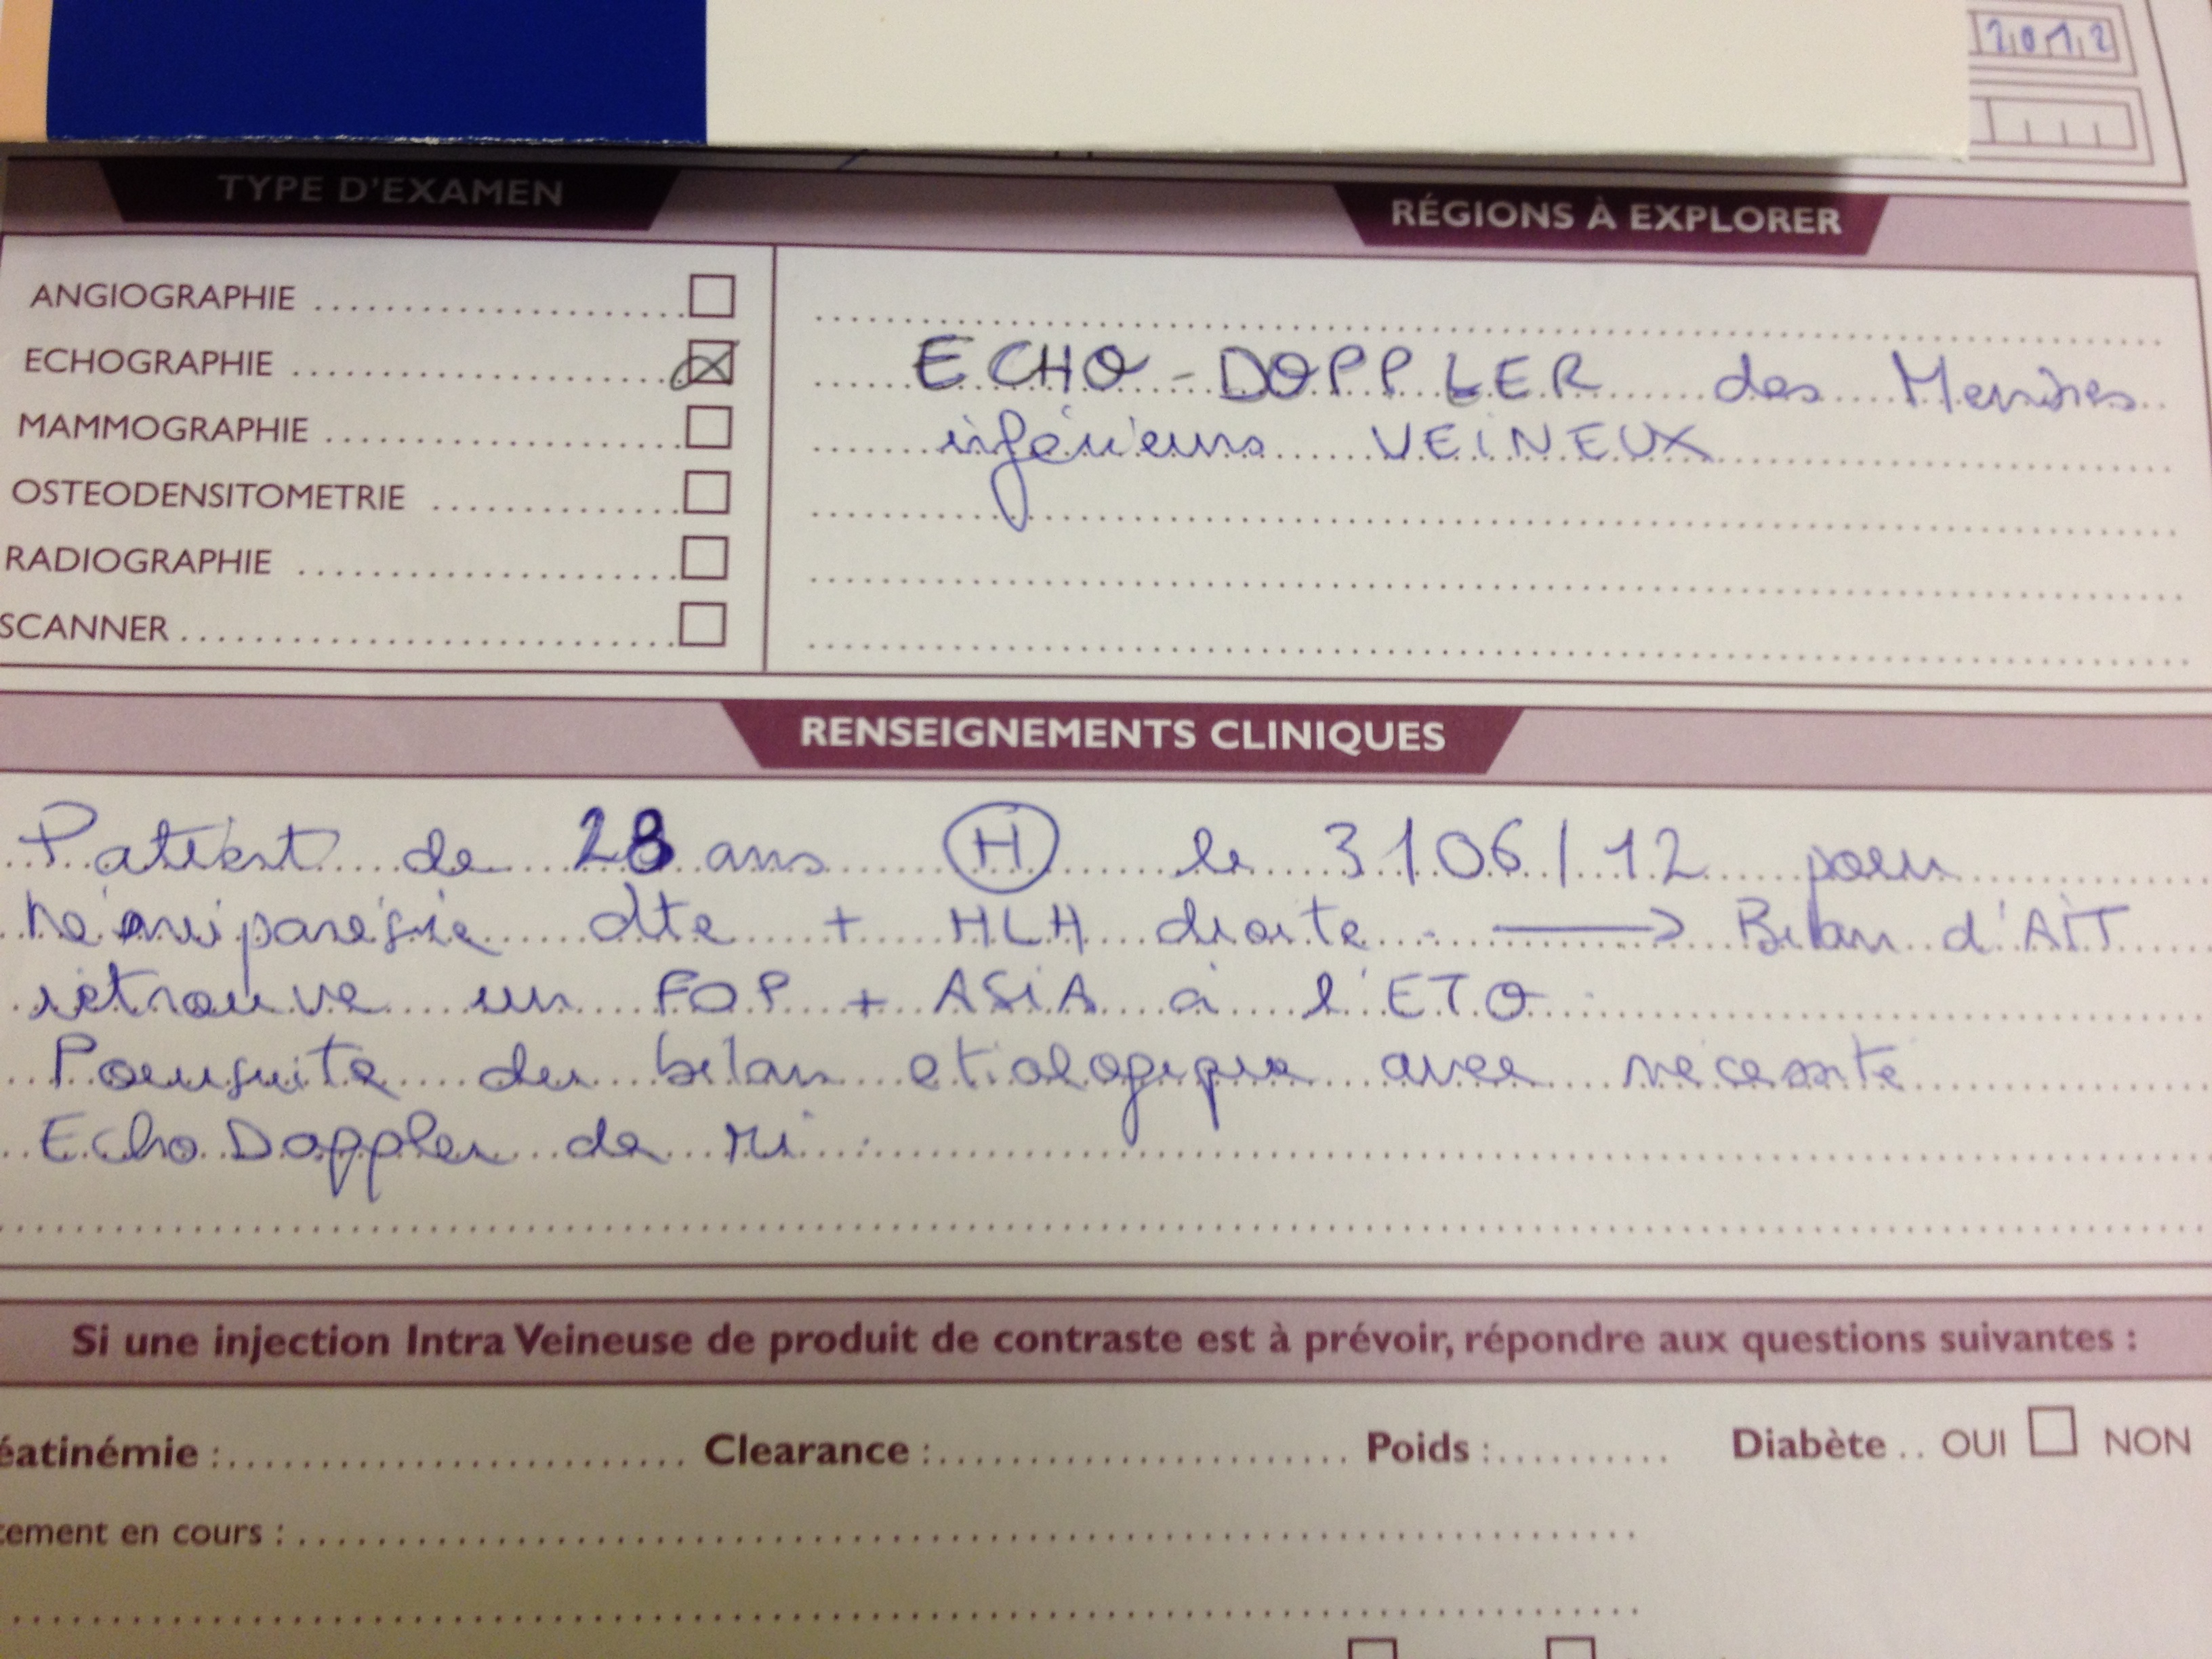 2012
TYPE D'EXAMEN
RÉGIONS À EXPLORER
ANGIOGRAPHIE
ECHOGRAPHIE
MAMMOGRAPHIE
OSTEODENSITOMETRIE
RADIOGRAPHIE
SCANNER
ECHO-DOPPLER des Membres
inférieurs VEINEUX
RENSEIGNEMENTS CLINIQUES
Patient de 28 ans H le 3/06/12 pour
hémiparésie dte + HLH droite. → Bilan d'AIT
retrouve un FOP + ASIA à l'ETO.
Poursuite du bilan etiologique avec necessité
Echo Doppler de MI.
Si une injection Intra Veineuse de produit de contraste est à prévoir, répondre aux questions suivantes :
éatinémie : Clearance : Poids : Diabète .. OUI NON
tement en cours :